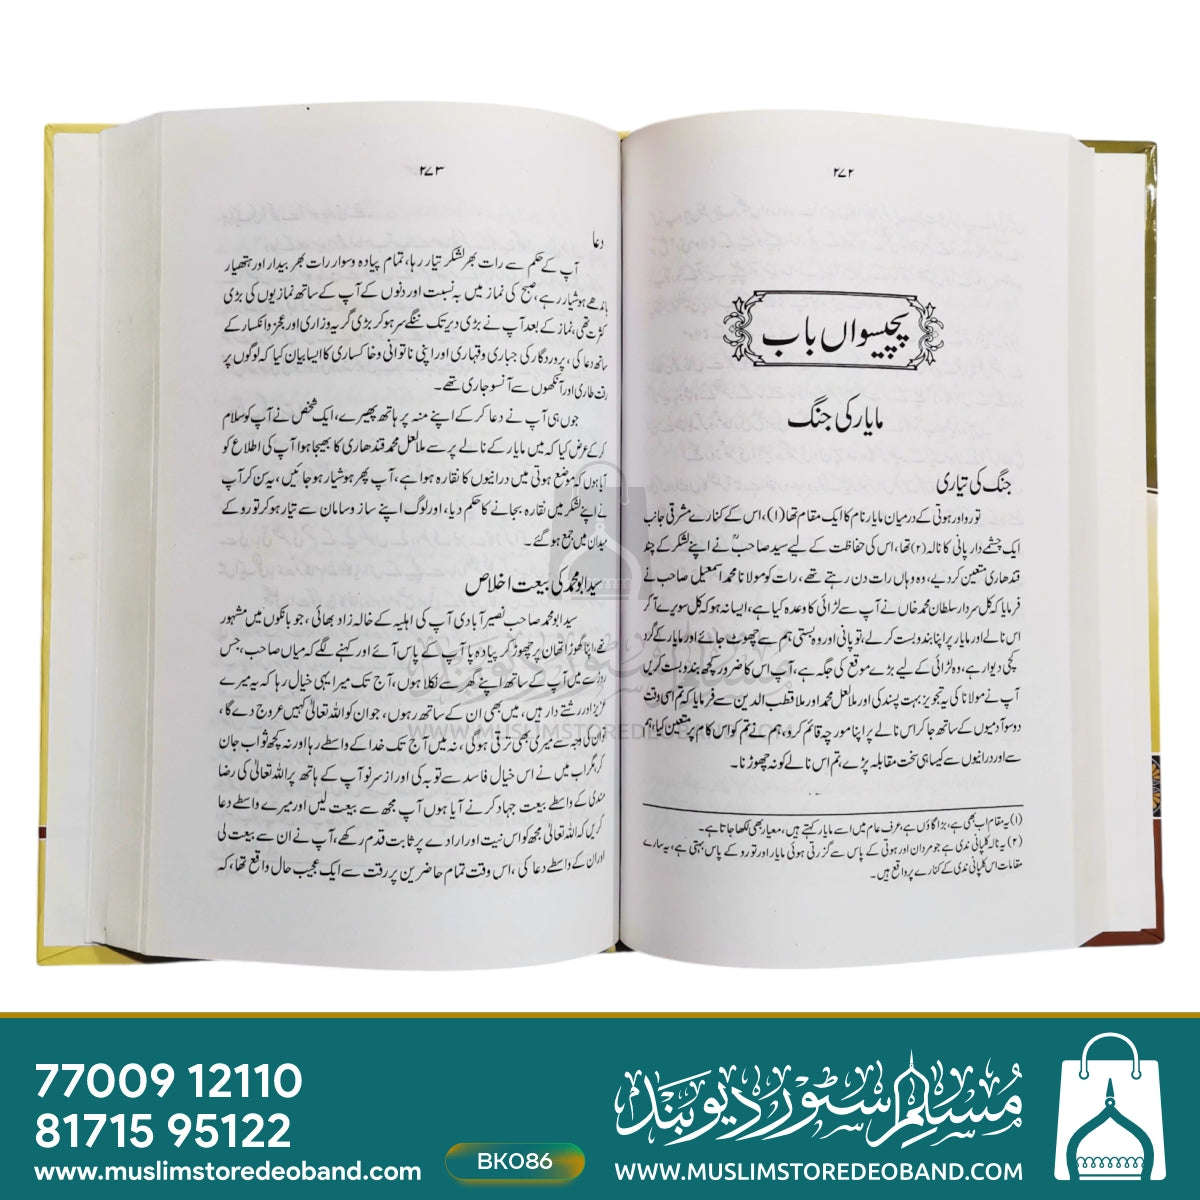 ۲۷۲
پچیسواں باب
مایار کی جنگ
جنگ کی تیاری
تورو اور ہوتی کے درمیان مایار نام کا ایک مقام تھا (۱)، اس کے کنارے مشرقی جانب
ایک چشمے دار پانی کا نالہ (۲) تھا، اس کی حفاظت کے لیے سید صاحبؒ نے اپنے لشکر کے چند
قندھاری متعین کردیے، وہ وہاں رات دن رہتے تھے، رات کو مولانا محمد اسمٰعیل صاحب نے
فرمایا کہ کل سردار سلطان محمد خاں نے آپ سے لڑائی کا وعدہ کیا ہے، ایسا نہ ہو کہ کل سویرے آ کر
اس نالے اور مایار پر اپنا بندوبست کرلے، تو پانی اور وہ بستی ہم سے چھوٹ جائے اور مایار کے گرد
کچی دیوار ہے، وہ لڑائی کے لیے بڑے موقع کی جگہ ہے، آپ اس کا ضرور کچھ بندوبست کریں
آپ نے مولانا کی یہ تجویز بہت پسند کی اور ملا لعل محمد اور ملا قطب الدین سے فرمایا کہ تم اسی وقت
دو سو آدمیوں کے ساتھ جا کر اس نالے پر اپنا مورچہ قائم کرو، ہم نے تم کو اس کام پر متعین کیا، ہم
سے اور درانیوں سے کیسا ہی سخت مقابلہ پڑے، تم اس نالے کو نہ چھوڑنا۔
(۱) یہ مقام اب بھی ہے، بڑا گاؤں ہے، عرف عام میں اسے مایار کہتے ہیں، معیار بھی لکھا جاتا ہے۔
(۲) یہ نالہ کلپانی ندی ہے جو مردان اور ہوتی کے پاس سے گزرتی ہوئی مایار اور تورو کے پاس بہتی ہے، یہ سارے
مقامات اس کلپانی ندی کے کنارے پر واقع ہیں۔
۲۷۳
دعا
آپ کے حکم سے رات بھر لشکر تیار رہا، تمام پیادہ و سوار رات بھر بیدار اور ہتھیار
باندھے ہوشیار رہے، صبح کی نماز میں بہ نسبت اور دنوں کے آپ کے ساتھ نمازیوں کی بڑی
کثرت تھی، نماز کے بعد آپ نے بڑی دیر تک ننگے سر ہو کر بڑی گریہ وزاری اور عجز وانکسار کے
ساتھ دعا کی، پروردگار کی جباری وقہاری اور اپنی ناتوانی وخاکساری کا ایسا بیان کیا کہ لوگوں پر
رقت طاری اور آنکھوں سے آنسو جاری تھے۔
جوں ہی آپ نے دعا کر کے اپنے منہ پر ہاتھ پھیرے، ایک شخص نے آپ کو سلام
کر کے عرض کیا کہ میں مایار کے نالے پر سے ملا لعل محمد قندھاری کا بھیجا ہوا آپ کی اطلاع کو
آیا ہوں کہ موضع ہوتی میں درانیوں کا نقارہ ہوا ہے، آپ پھر ہوشیار ہو جائیں، یہ سن کر آپ
نے اپنے لشکر میں نقارہ بجانے کا حکم دیا، اور لوگ اپنے ساز و سامان سے تیار ہو کر تورو کے
میدان میں جمع ہو گئے۔
سید ابو محمد کی بیعت اخلاص
سید ابو محمد صاحب نصیر آبادی آپ کی اہلیہ کے خالہ زاد بھائی، جو بانکوں میں مشہور
تھے، اپنا گھوڑا تھان پر چھوڑ کر پیادہ پا آپ کے پاس آئے اور کہنے لگے کہ میاں صاحب، جس
روز سے میں آپ کے ساتھ اپنے گھر سے نکلا ہوں، آج تک میرا یہی خیال رہا کہ یہ میرے
عزیز اور رشتے دار ہیں، میں بھی ان کے ساتھ رہوں، جو ان کو اللہ تعالیٰ کہیں عروج دے گا،
تو ان کی وجہ سے میری بھی ترقی ہوگی، نہ میں آج تک خدا کے واسطے رہا اور نہ کچھ ثواب جان
کر، مگر اب میں نے اس خیال فاسد سے توبہ کی اور از سر نو آپ کے ہاتھ پر اللہ تعالیٰ کی رضا
مندی کے واسطے بیعت جہاد کرنے آیا ہوں آپ مجھ سے بیعت لیں اور میرے واسطے دعا
کریں کہ اللہ تعالیٰ مجھ کو اس نیت اور ارادے پر ثابت قدم رکھے، آپ نے ان سے بیعت لی
اور ان کے واسطے دعا کی، اس وقت تمام حاضرین پر رقت سے ایک عجیب حال واقع تھا، کہ
مسلم سٹور دیوبند
WWW.MUSLIMSTOREDEOBAND.COM
77009 12110
81715 95122
www.muslimstoredeoband.com
BK086
مسلم سٹور دیوبند
www.MUSLIMSTOREDEOBAND.COM